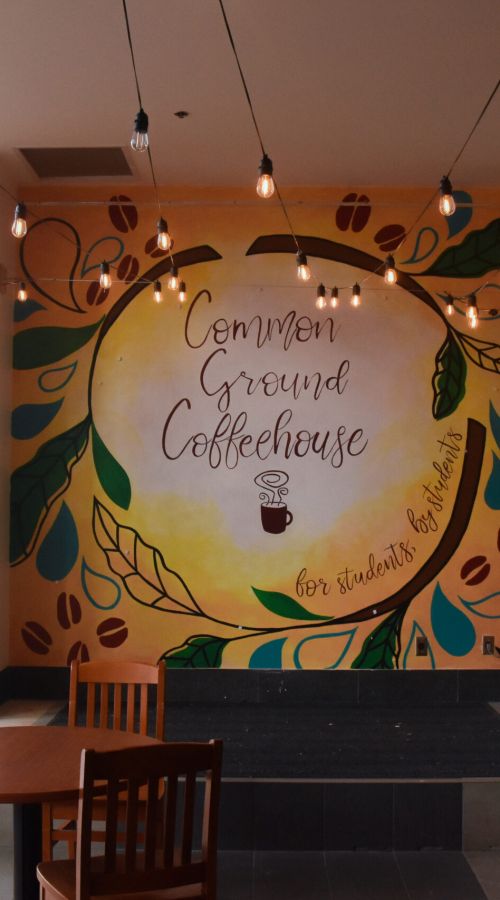 Common
Ground
Coffeehouse
for students, by students